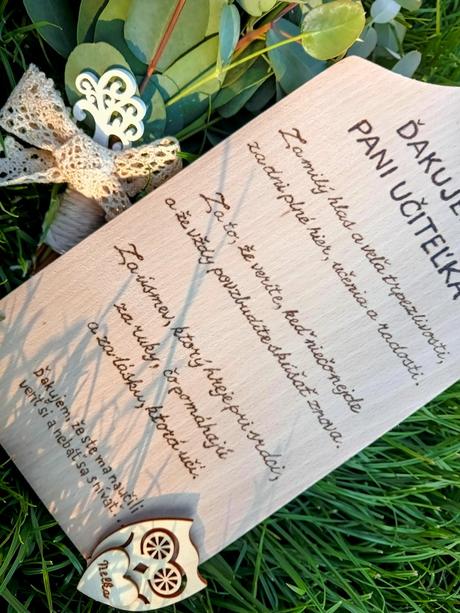 ĎAKUJE
PANI UČITEĽKA
Za milý hlas a veľa trpezlivosti,
za dni plné hier, učenia a radosti.
Za to, že veríte, keď niečo nejde
a že vždy povzbudíte skúšať znova.
Za úsmev, ktorý hreje pri srdci,
za ruky čo pomáhajú
a za lásku, ktorá učí.
Ďakujem, že ste ma naučili
veriť si a nebáť sa snívať.
Nelka